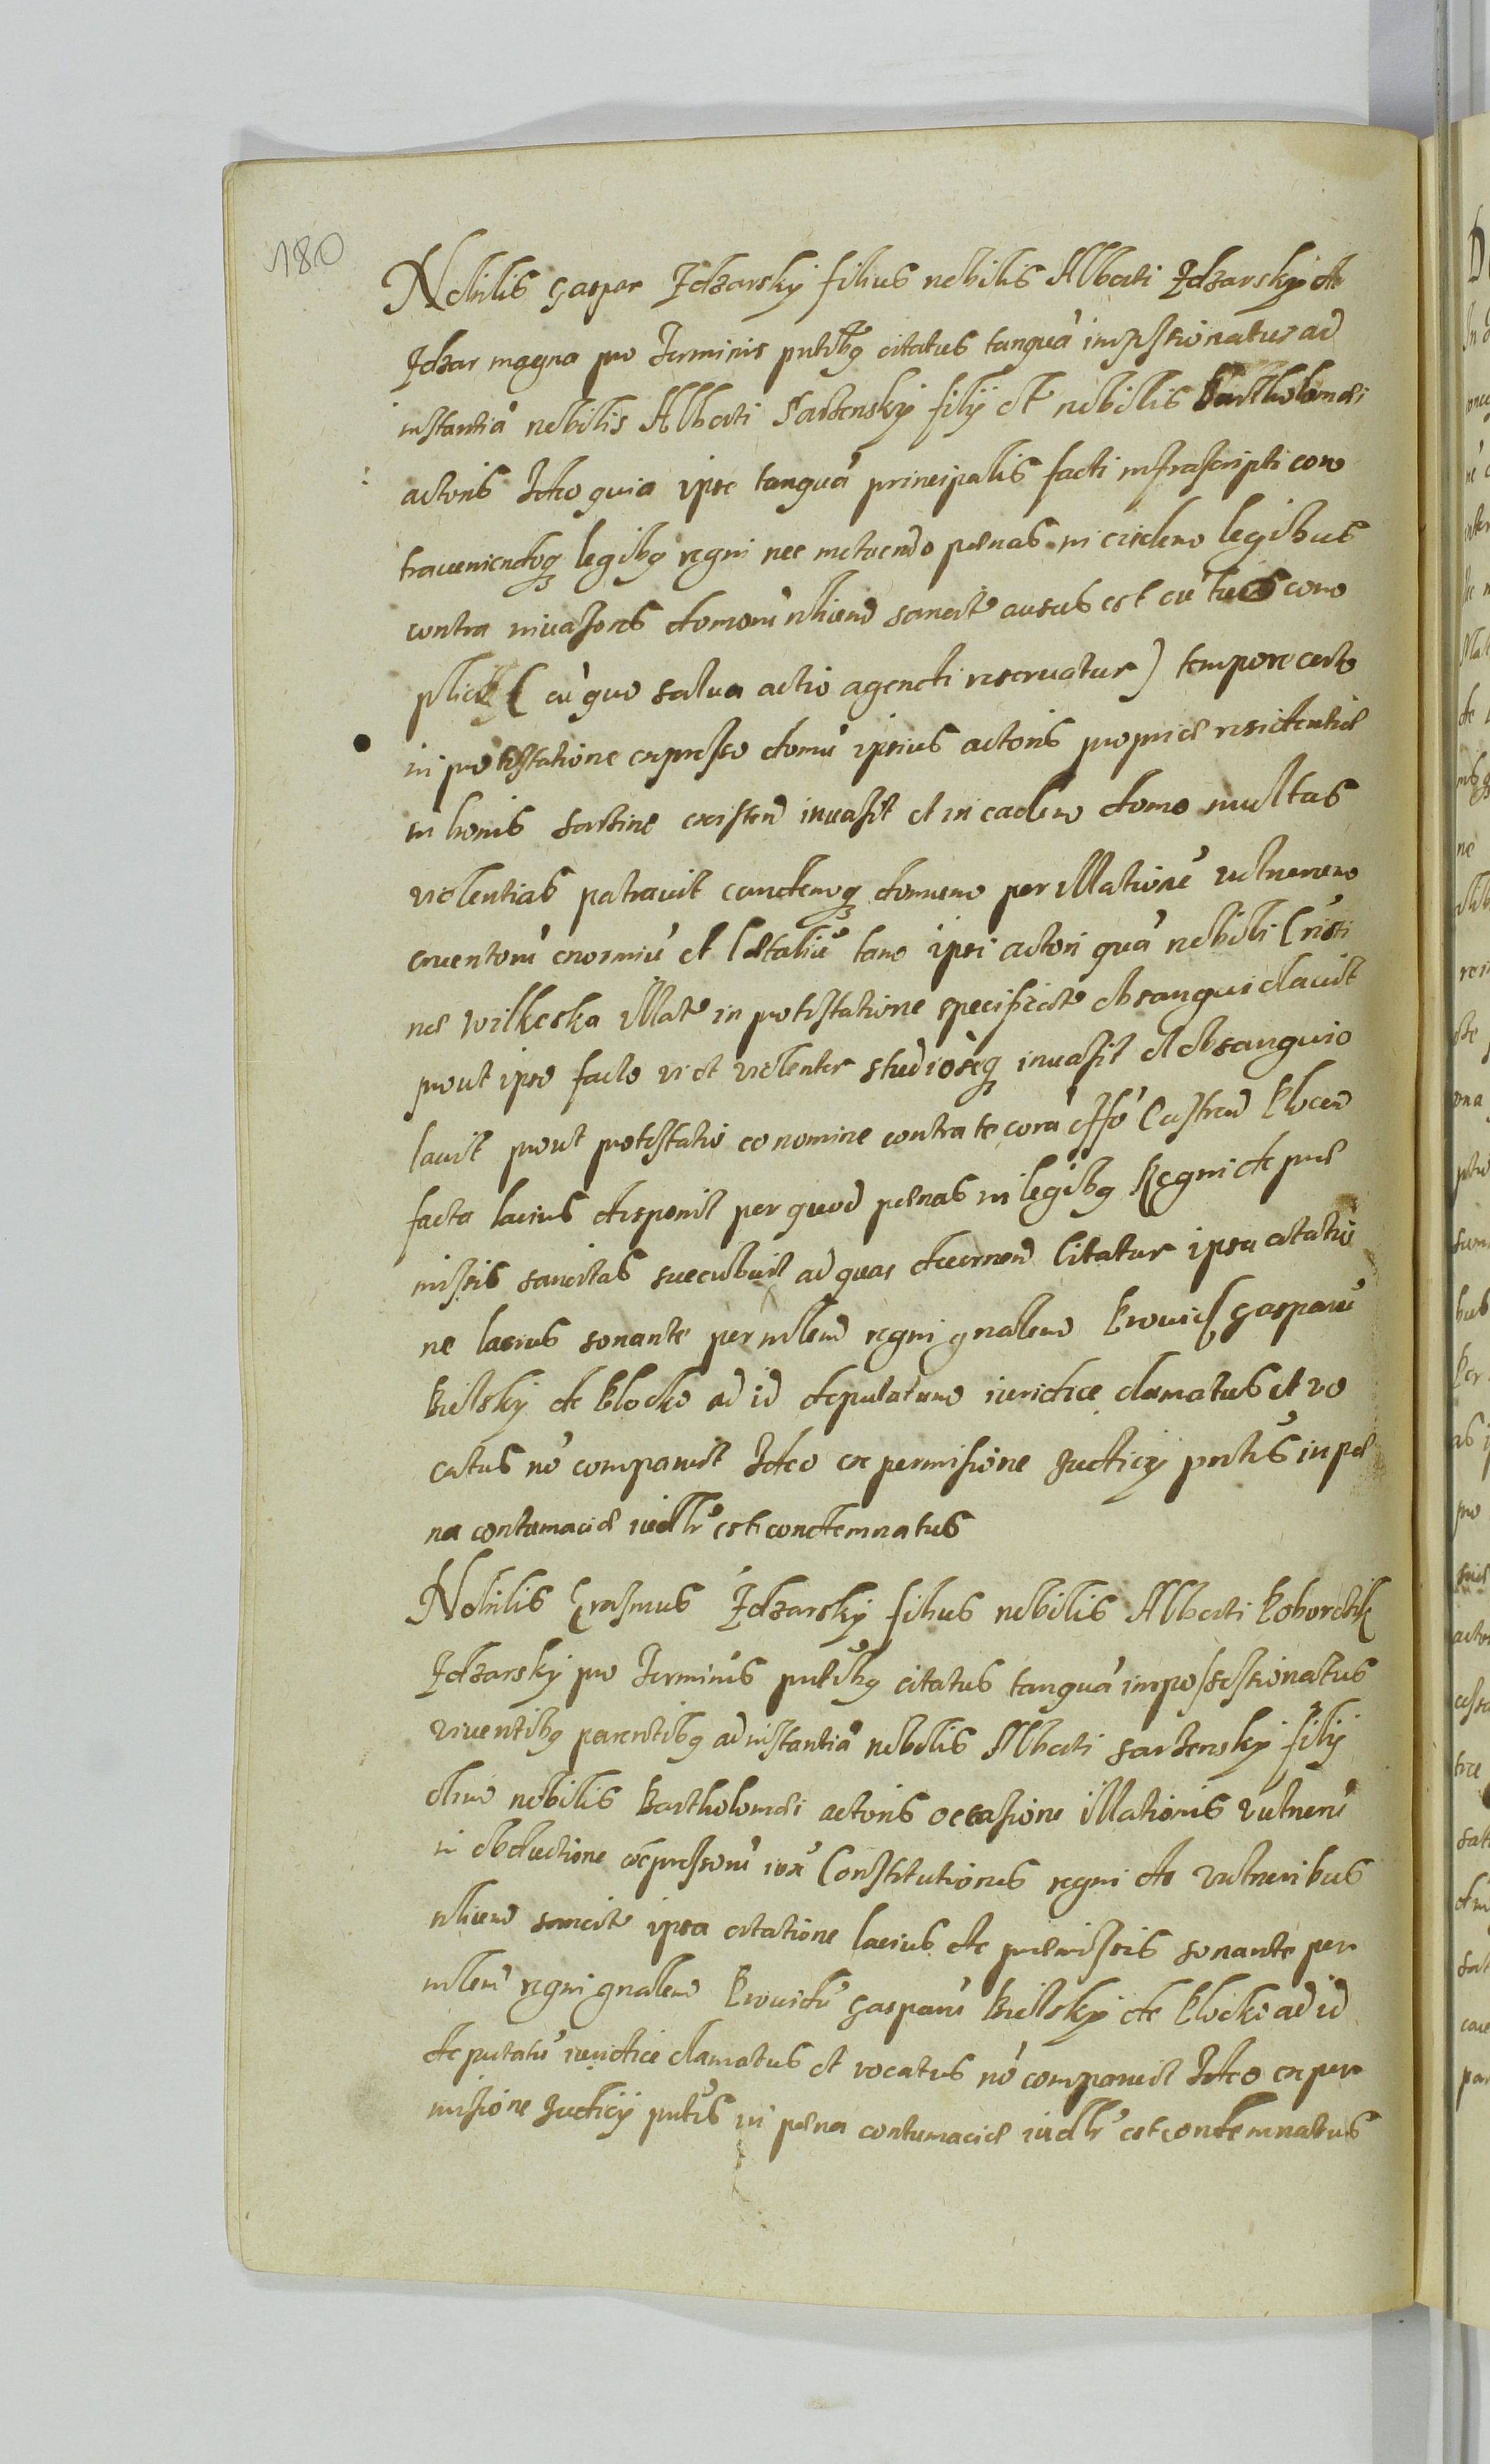 180
Nobilis Gaspar Jdzarsky filius nobilis Alberti Jdzarsky de
Jdzar magna pro Terminis pntibq citatus tanquã impossessionatus ad
instantiã nobilis Alberti Sarzensky filij et nobilis Bartholomei
actoris Ideo quia ipse tanquã principalis facti infrascripti con
traueniendoq legibq regni nec metuendo pænas in eisdem legibus
contra inuasores domorũ sancite ausus est cũ suo com
plice (cũ quo salua actio agendi reseruatur) tempore certo
in protestatione expresso domũ ipsius actoris propriæ residentiæ
in bonis Sarzine existen inuasit et in eadem domo multas
violentias patrauit eandemq domum per illationẽ vulnerum
cruentorũ enormiũ et lætaliũ tam ipsi actori quã nobili Cristi
næ Wilkeska illate in protestatione specificate obsanguidauit
prout ipso facto vi et violenter studioseq inuasit et obsangui
lauit prout protestatio eo nomine contra te corã offo Castren Plocen
facta lacius disponit per quod pænas in legibq Regni de præ
missis sancitas succubuit ad quas decernen Citatus ipsa citatio
ne lacius sonante per mlem regni gnalem Prouid Gasparũ
Bielsky de Plocko ad id deputatum iuridice clamatus et vo
catus nõ comparuit Ideo ex permissione Judicij pntis in pæ
na contumaciæ iudlr est condemnatus
Nobilis Erasmus Jdzarsky filius nobilis Alberti
Jdzarsky pro Terminis pntibq citatus tanquã impossessionatus
viventibq parentibq ad instantiã nobilis Alberti Sarzensky filij
olim nobilis Bartholomei actoris occasione illationis vulnerũ
in obductione expressorũ iux Constitutiones regni de vulneribus
sancite ipsa citatione lacius de præmissis sonante per
mlem regni gnalem Prouidũ Gasparũ Bielsky de Plocko ad id
deputatũ iuridice clamatus et vocatus nõ comparuit Ideo ex per
missione Judicij pntis in pæna contumaciæ iudlr est condemnatus